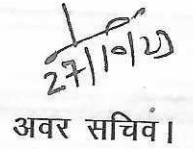 27/10/25
अवर सचिव।